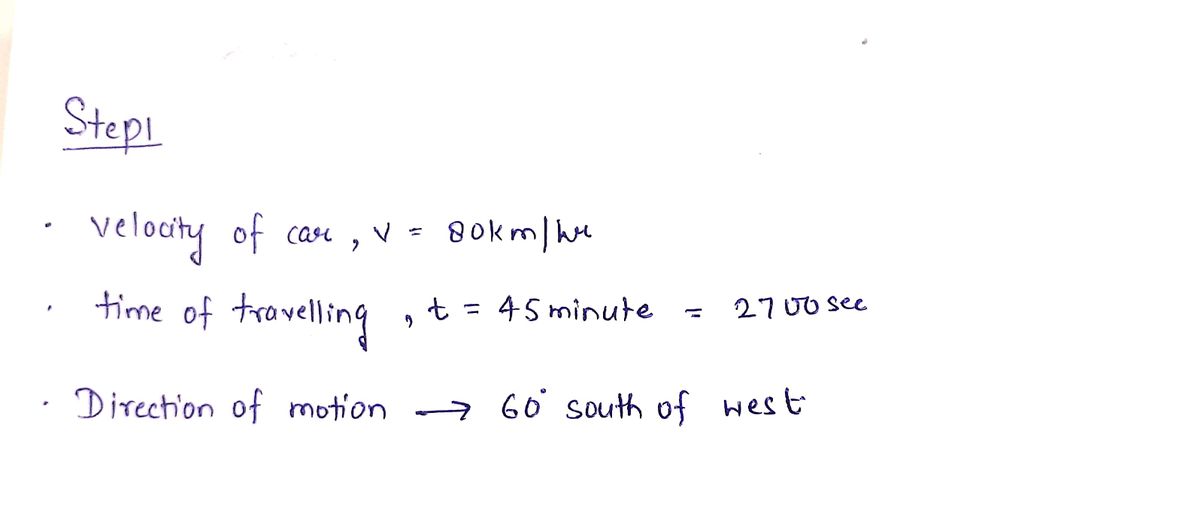 Step1
· velocity of car, v = 80km/hr
· time of travelling, t = 45minute = 2700 sec
· Direction of motion → 60° south of west